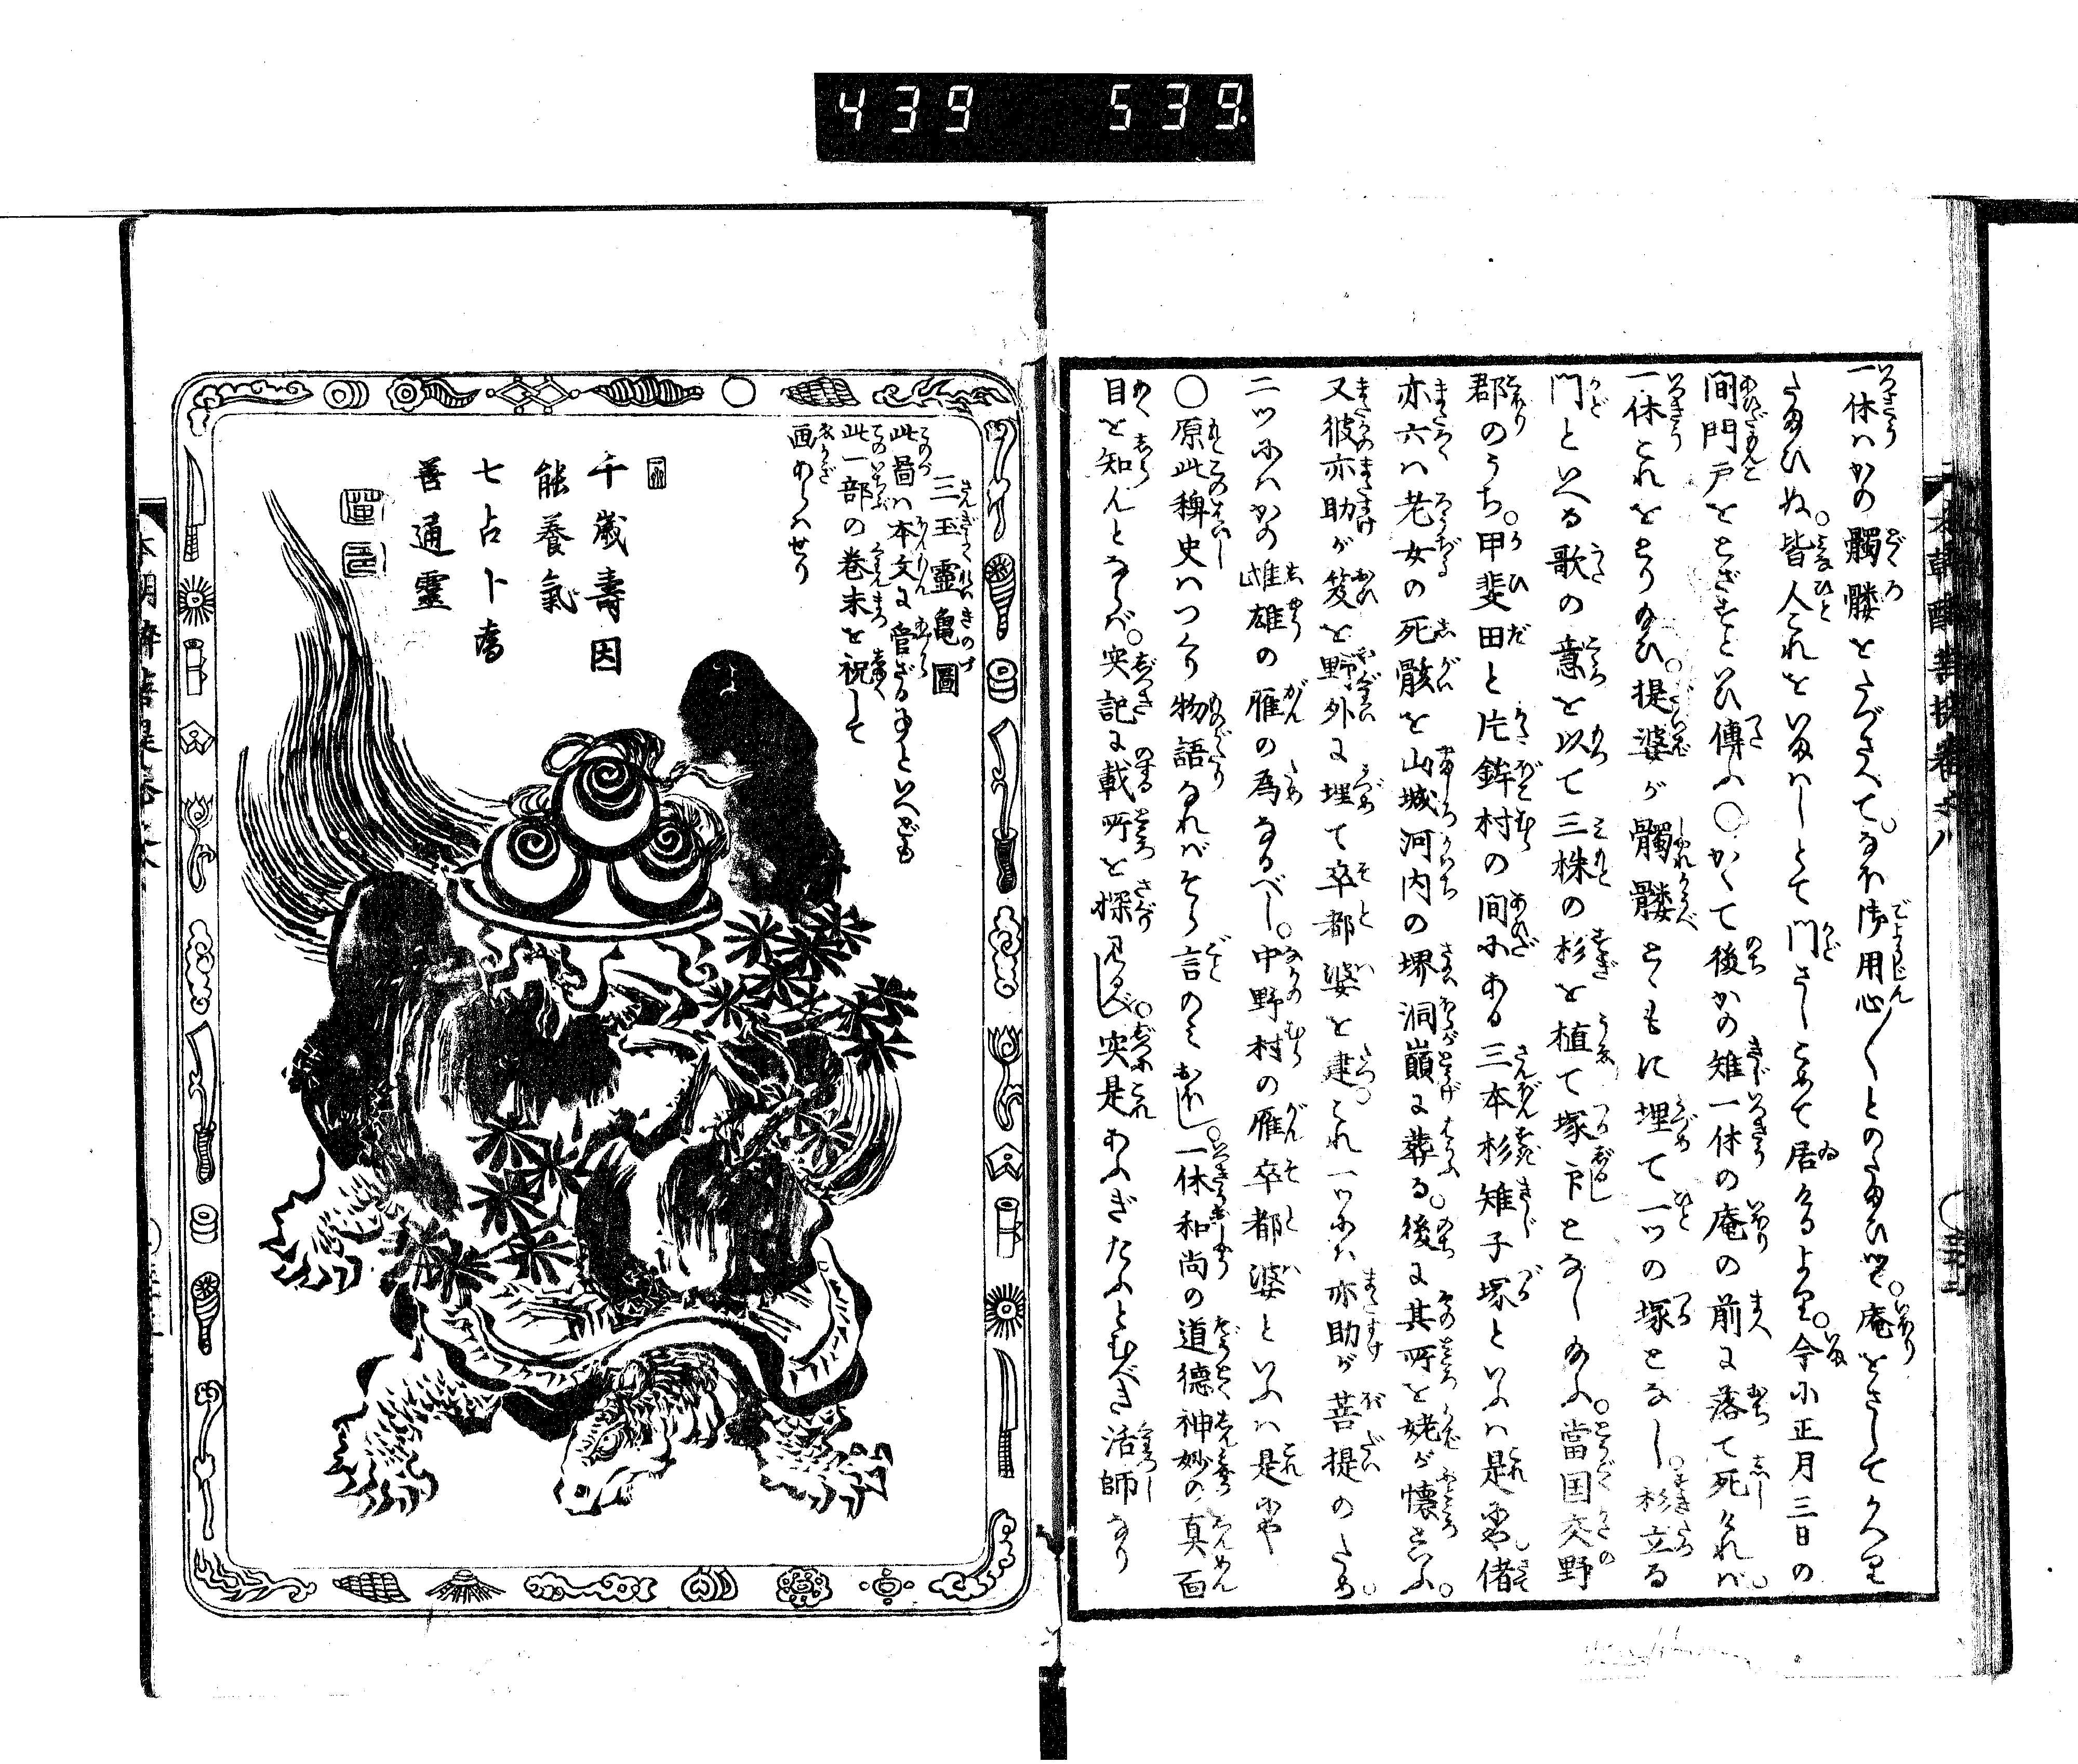 439 539
一休ハかの髑髏とたづさへて。なほ御用心〳〵とのたまひつゝ。庵をさしてかへり
たまひぬ。皆人これをいまハしとて門さしこめて居けるより。今に正月三日の
間門戸をとざすといひ傳ふ○かくて後かの雉一休の庵の前に落て死しければ。
一休これをとり給ひ。提婆が髑髏とともに埋て一ツの塚となし。杉立る
門といへる歌の意を以て三株の杉を植て塚印となし給ふ。當国交野
郡のうち。甲斐田と片鉾村の間にある三本杉雉子塚といふハ是也。偖
亦六ハ老女の死骸を山城河内の堺洞巓に葬る。後に其所を姥が懐といふ。
又彼亦助が笈を野外に埋て卒都婆を建。これ一ツにハ亦助が菩提のため。
二ツにハかの雌雄の雁の為なるべし。中野村の雁卒都婆といふハ是にや
○原此稗史ハつくり物語なれバそら言のミおほし。一休和尚の道徳神妙の真面
目を知んとならバ。実記に載所を探見るべし。実是あふぎたふとむべき活師なり
三玉靈亀圖
此啚ハ本文に管ざる事といへども
此一部の巻末を祝して
画あらハせり
千歳壽因
能養氣
七占卜
善通靈